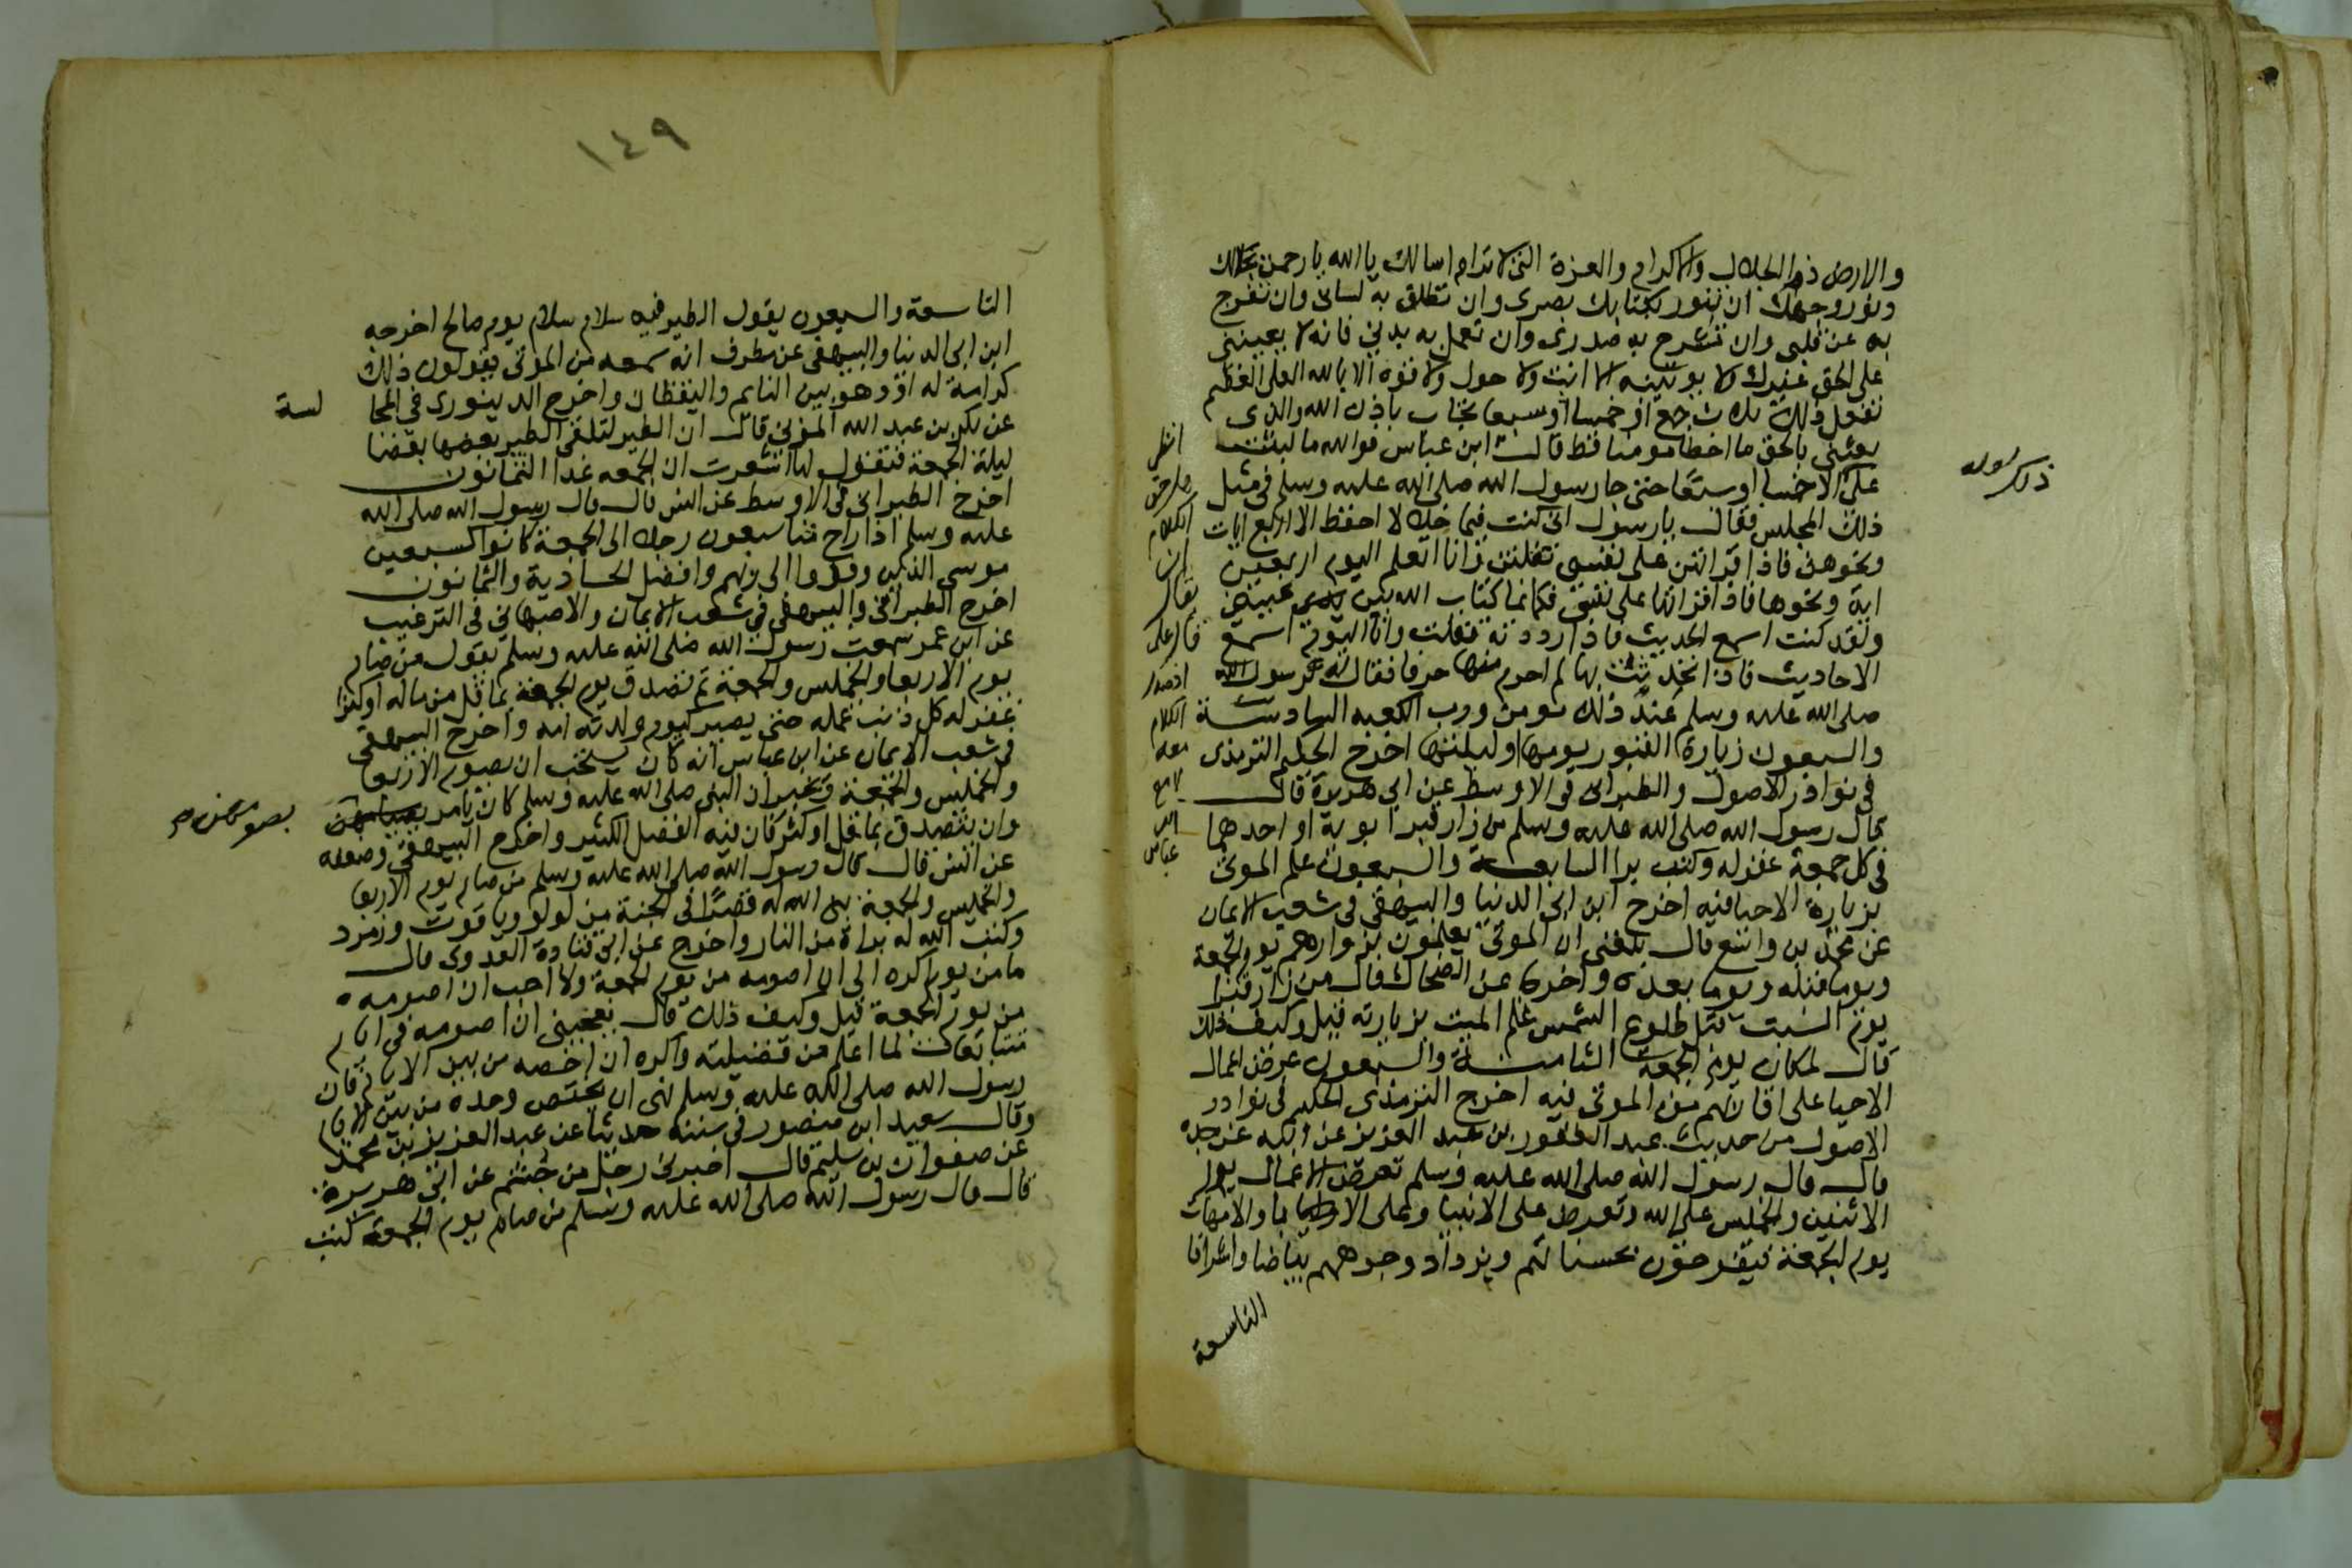 والارض ذو الجلال والاكرام والعزة التى لا ترام اسالك يا الله يا رحمن بجلالك
ونور وجهك ان تنور بكتابك بصرى وان تطلق به لسانى وان تفرج
به عن قلبى وان تشرح به صدرى وان تعمل به بدنى فانه لا يعيننى
على الحق غيرك ولا يوتينه الا انت ولا حول ولا قوة الا بالله العلى العظيم
تفعل ذلك ثلاث جمع او خمسا او سبعا تجاب باذن الله والذى
بعثنى بالحق ما اخطا مومنا قط قال ابن عباس فوالله ما لبث
على الا خمسا او سبعا حتى جا رسول الله صلى الله عليه وسلم فى مثل
ذلك المجلس فقال يا رسول انى كنت فيما خلا لا احفظ الا اربع ايات
ونحوهن فاذا قراتهن على نفسى تفلتن وانا اتعلم اليوم اربعين
اية ونحوها فاذا قراتها على نفسى فكانما كتاب الله بين عينى
ولقد كنت اسمع الحديث فاذا رددته تفلت وانا اليوم اسمع
الاحاديث فاذا تحدثت بها لم اخرم منها حرفا فقال له رسول الله
صلى الله عليه وسلم عند ذلك مومن ورب الكعبه السادسة
والسبعون زيارة القبور يومها وليلتها اخرج الحكيم الترمذى
فى نوادر الاصول والطبرانى فى الاوسط عن ابى هريرة قال
قال رسول الله صلى الله عليه وسلم من زار قبر ابويه او احدهما
فى كل جمعة غفر له وكتب برا السابعة والسبعون علم الموتى
بزيارة الاحيا فيه اخرج ابن ابى الدنيا والبيهقى فى شعب الايمان
عن محمد بن واسع قال بلغنى ان الموتى يعلمون بزوارهم يوم الجمعة
ويوما قبله ويوما بعده واخرجا عن الضحاك قال من زار قبرا
يوم السبت قبل طلوع الشمس علم الميت بزيارته قيل وكيف ذلك
قال لمكان يوم الجمعة الثامنة والسبعون عرض اعمال
الاحيا على اقاربهم من الموتى فيه اخرج الترمذى الحكيم فى نوادر
الاصول من حديث عبد الغفور بن عبد العزيز عن ابيه عن جده
قال قال رسول الله صلى الله عليه وسلم تعرض الاعمال يوم
الاثنين والخميس على الله وتعرض على الانبيا وعلى الابا والامهات
يوم الجمعة فيفرحون بحسناتهم ويزداد وجوههم بياضا واشراقا
التاسعة
انظر
الكلام
ابن
عباس
١٤٩
التاسعة والسبعون يقول الطير فيه سلام سلام يوم صالح اخرجه
ابن ابى الدنيا والبيهقى عن مطرف انه سمعه من الموتى يقولون ذلك
كرامة له او وهو بين النايم واليقظان واخرج الدينورى فى المجا
لسة
عن بكر بن عبد الله المزنى قال ان الطير لتلقى الطير بعضها بعضا
ليلة الجمعة فتقول لها اشعرت ان الجمعه غدا الثمانون
اخرج الطبرانى فى الاوسط عن انس قال قال رسول الله صلى الله
عليه وسلم اذا راح منا سبعون رجلا الى الجمعة كانوا كسبعين
موسى الذين وفدوا الى ربهم وافضل الحادية والثمانون
اخرج الطبرانى والبيهقى فى شعب الايمان والاصبهانى فى الترغيب
عن ابن عمر سمعت رسول الله صلى الله عليه وسلم يقول من صام
يوم الاربعا والخميس والجمعة ثم تصدق يوم الجمعة بما قل من ماله او كثر
غفر له كل ذنب عمله حتى يصير كيوم ولدته امه واخرج البيهقى
فى شعب الايمان عن ابن عباس انه كان يستحب ان يصوم الاربعا
والخميس والجمعة ويخبر ان النبى صلى الله عليه وسلم كان يامر
بصومهن
وان يتصدق بما قل او كثر فان فيه الفضل الكثير واخرج البيهقى وضعفه
عن انس قال قال رسول الله صلى الله عليه وسلم من صام يوم الاربعا
والخميس والجمعة بنى الله له قصرا فى الجنة من لولو وياقوت وزمرد
وكتب الله له براة من النار واخرج عن ابى قتادة العدوى قال
ما من يوم اكره الى ان اصومه من يوم الجمعة ولا احب ان اصومه
من يوم الجمعة قيل وكيف ذلك قال يعجبنى ان اصومه فى ايام
متتابعات لما اعلم من فضيلته واكره ان اخصه من بين الايام فان
رسول الله صلى الله عليه وسلم نهى ان يختص وحده من بين الايام
وقال سعيد ابن منصور فى سننه حدثنا عن عبد العزيز بن محمد
عن صفوان بن سليم قال اخبرنى رجل من جشم عن ابى هريرة
قال قال رسول الله صلى الله عليه وسلم من صام يوم الجمعة كتب